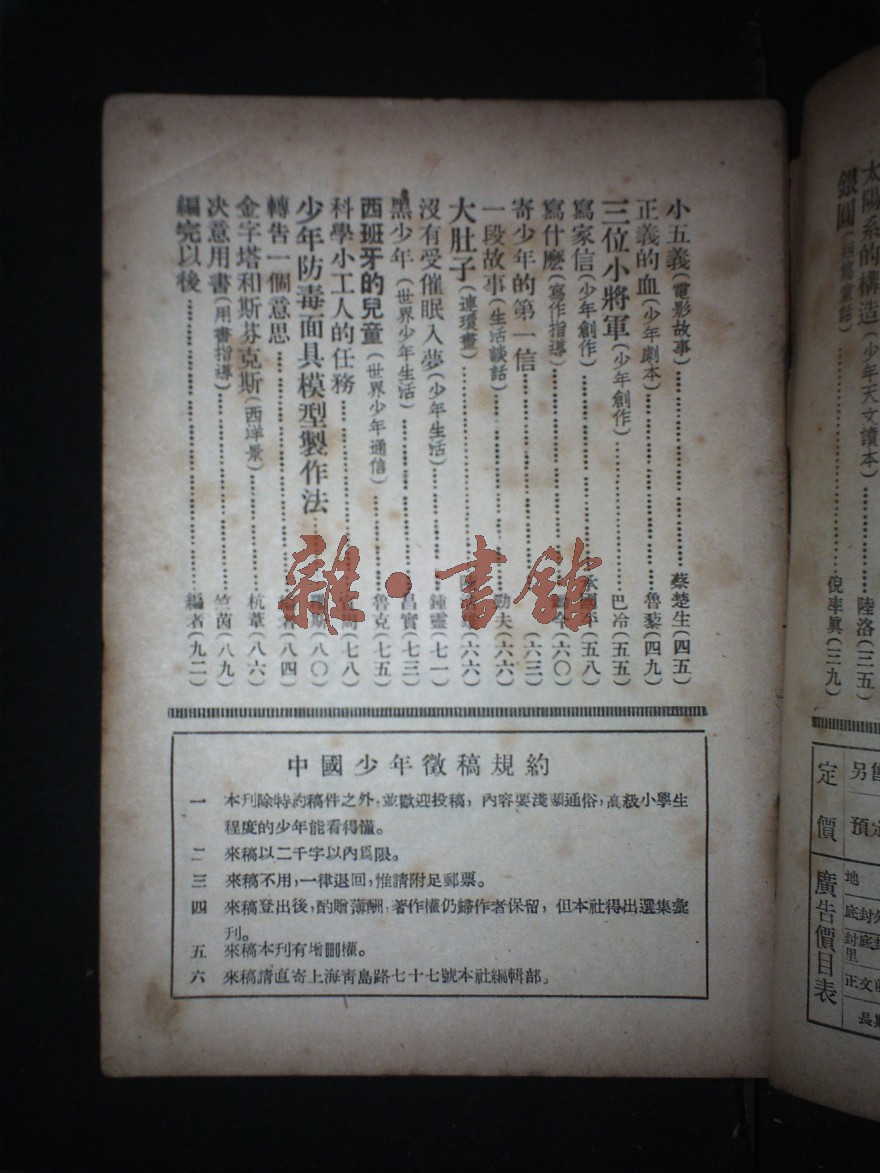 太陽系的構造(少年天文讀本)
陸洛(三五)
銀圓
倪率眞(三九)
小五義(電影故事)蔡楚生(四五)
正義的血(少年劇本)魯藜(四九)
三位小將軍(少年創作)巴冷(五五)
寫家信(少年創作)(五八)
寫什麽(寫作指導)(六〇)
寄少年的第一信(六三)
一段故事(生活談話)勁夫(六六)
大肚子(連環畫)(六六)
沒有受催眠入夢(少年生活)鍾靈(七一)
黑少年(世界少年生活)昌實(七三)
西班牙的兒童(世界少年通信)魯克(七五)
科學小工人的任務(七八)
少年防毒面具模型製作法(八〇)
轉告一個意思(八四)
金字塔和斯芬克斯(西洋景)杭葦(八六)
决意用書(用書指導)竺茵(八九)
編完以後編者(九二)
中國少年徵稿規約
一 本刊除特約稿件之外,並歡迎投稿,內容要淺顯通俗,高級小學生
程度的少年能看得懂。
二 來稿以二千字以內爲限。
三 來稿不用,一律退回,惟請附足郵票。
四 來稿登出後,酌贈薄酬,著作權仍歸作者保留,但本社得出選集彙
刊。
五 來稿本刊有增刪權。
六 來稿請直寄上海靑島路七十七號本社編輯部。
定價
另
預定
廣告價目表
地
底封外
封底封里
正文前
長期
雜·書館